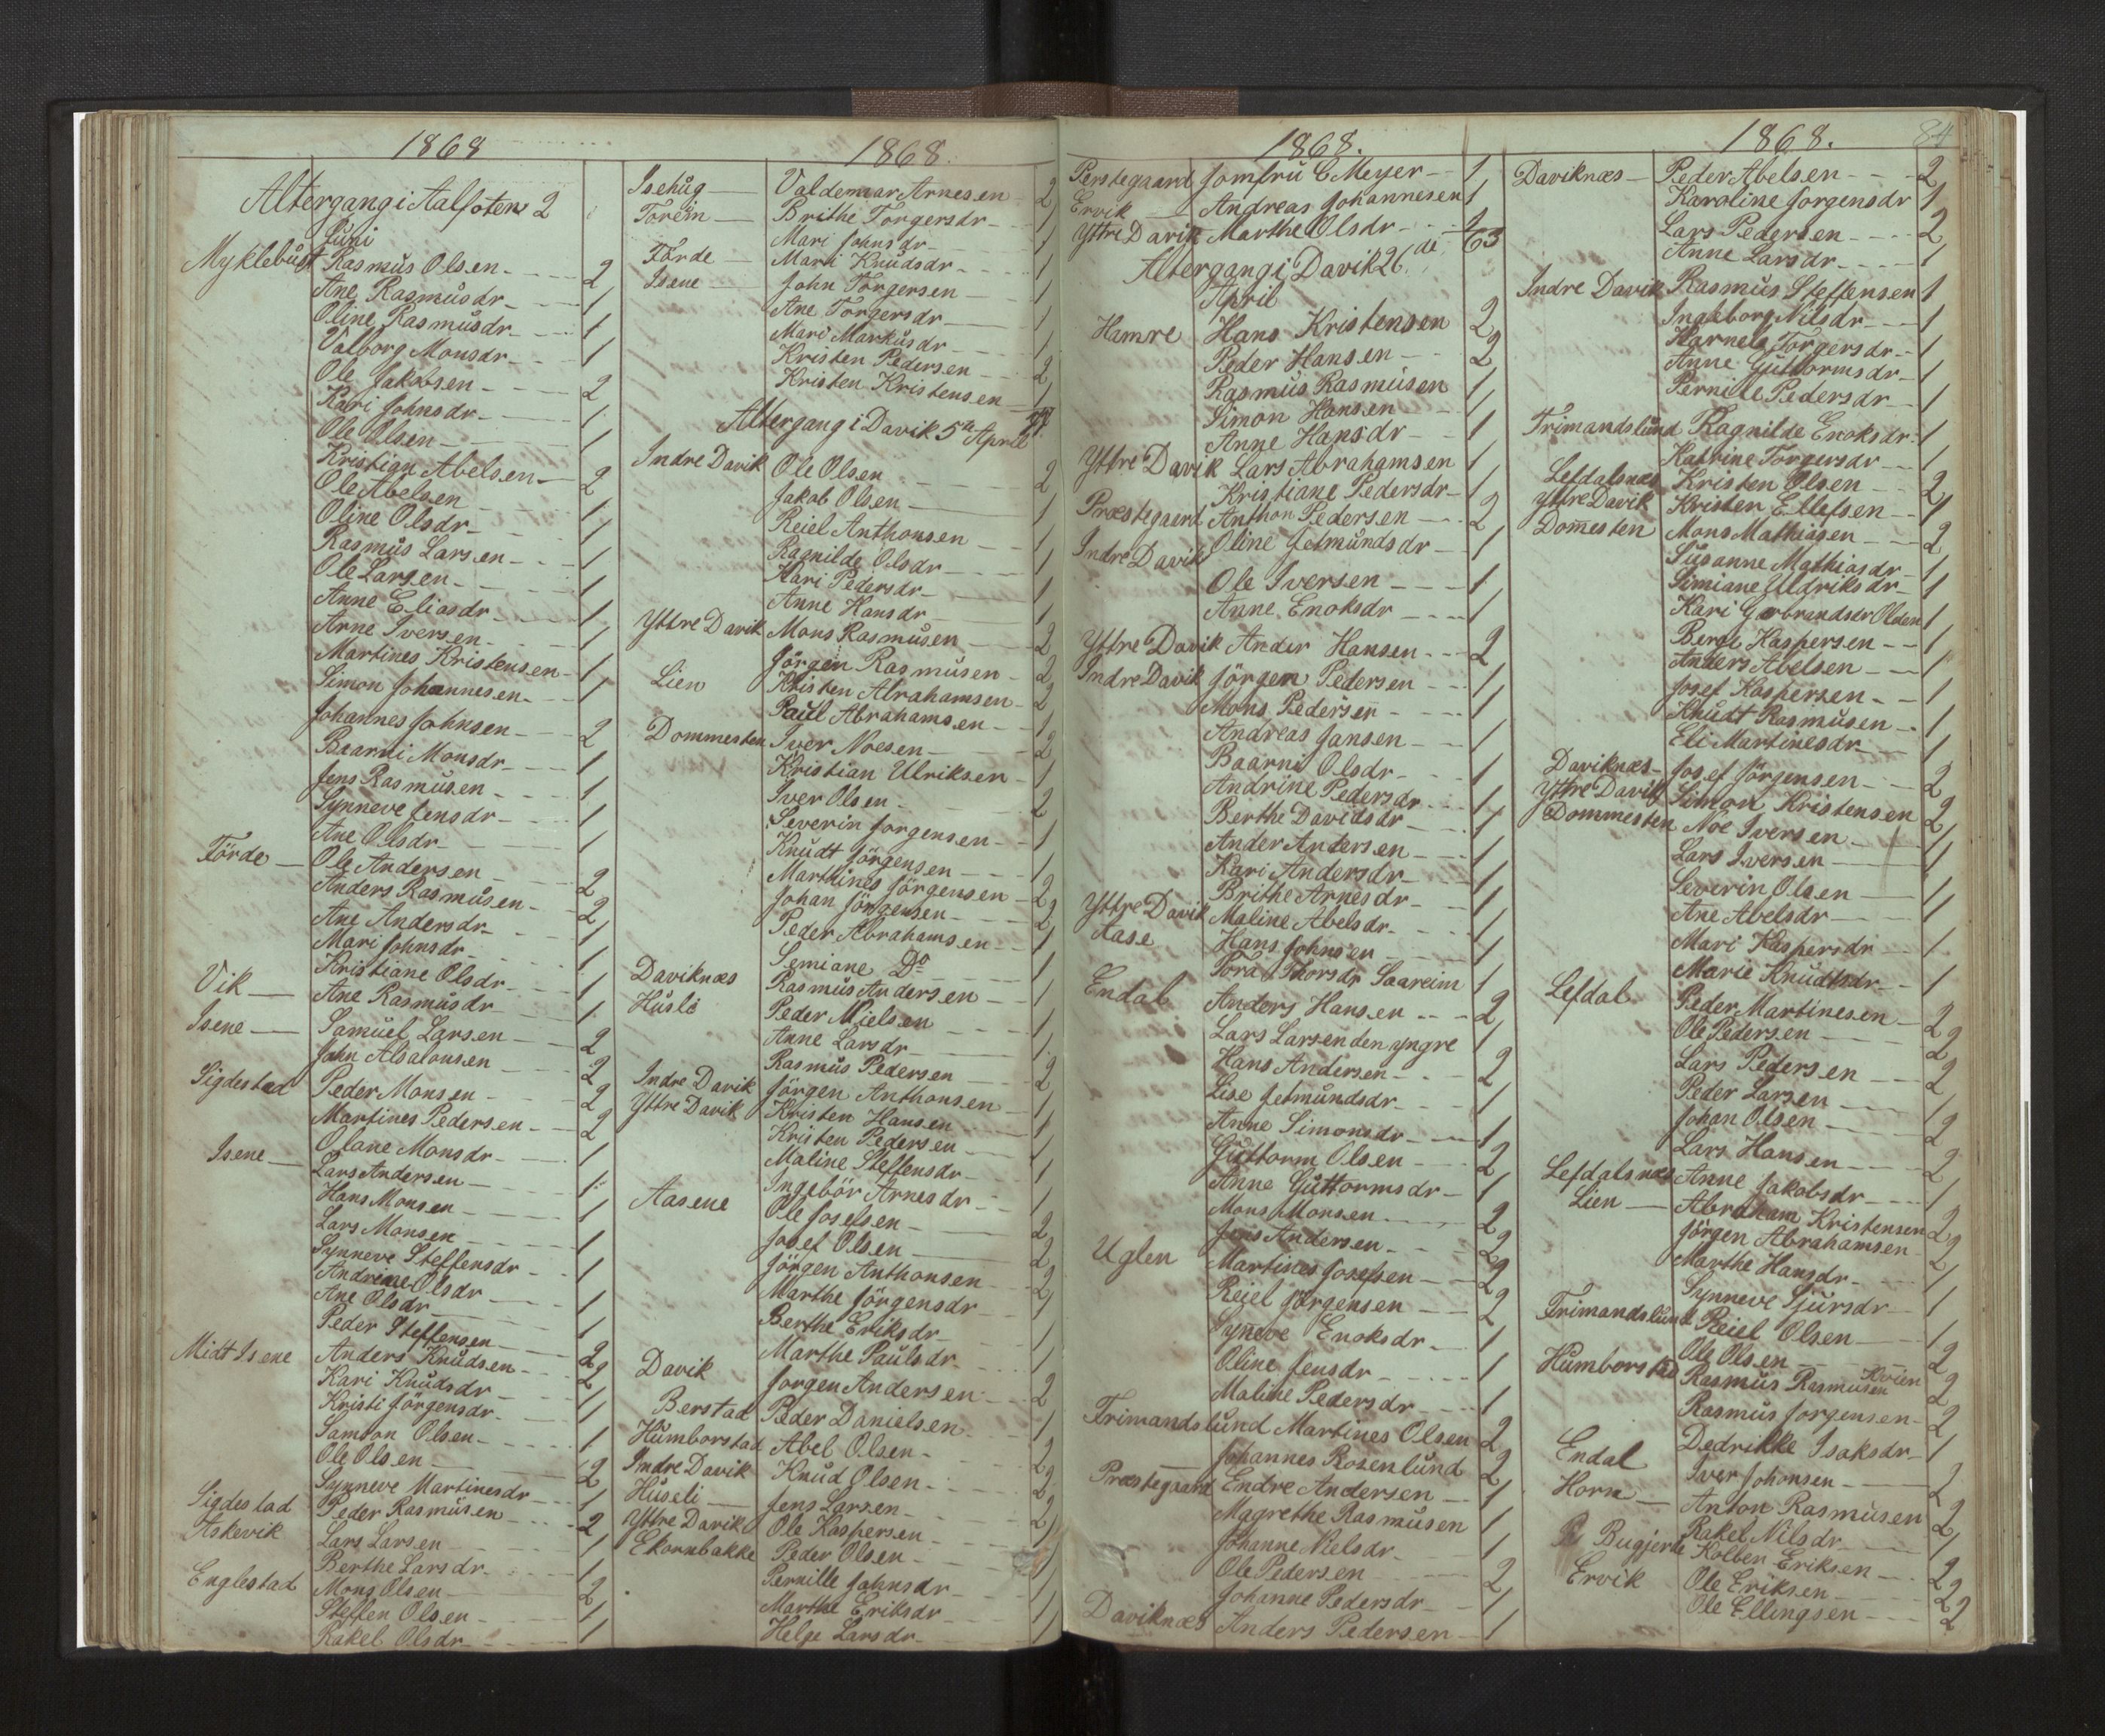 1868
Altergang i Aalfoten 2
Juni
Myklebust Rasmus Olsen 2
Ane Rasmusdr 1
Oline Rasmusdr 1
Valborg Monsdr 1
Ole Jakobsen 2
Kari Johnsdr 1
Ole Olsen 1
Kristian Abelsen 2
Ole Abelsen 1
Oline Olsdr 1
Rasmus Larsen 1
Ole Larsen 1
Anne Eliasdr 1
Arne Iversen 1
Martines Kristensen 1
Simon Johannesen 1
Johannes Johnsen 2
Baarni Monsdr 1
Jens Rasmusen 1
Synneve Jensdr 1
Ane Olsdr 1
Förde Ole Andersen 2
Anders Rasmusen 2
Ane Andersdr 1
Mari Johnsdr 1
Kristiane Olsdr 1
Vik Ane Rasmusdr 1
Isene Samuel Larsen 2
John Absalonsen 2
Sigdestad Peder Monsen 2
Martines Pedersen 2
Olane Monsdr 1
Isene Lars Andersen 1
Hans Monsen 1
Lars Monsen 1
Synneve Steffensdr 1
Andrine Olsdr 1
Ane Olsdr 1
Peder Steffensen 2
Midt Isene Anders Knudsen 2
Kari Knudsdr 1
Kristi Jörgensdr 1
Samson Olsen 1
Ole Olsen 2
Synneve Martinesdr 1
Sigdestad Peder Rasmusen 2
Askevik Lars Larsen 1
Berthe Larsdr 1
Englestad Mons Olsen 2
Steffen Olsen 1
Rakel Olsdr 1
1868.
Isehug Valdemar Arnesen 2
Toreim Brithe Torgersdr 1
Mari Johnsdr 1
Förde Mari Knudsdr 1
Isene John Torgersen 1
Ane Torgersdr 1
Mari Markusdr 1
Kristen Pedersen 2
Kristen Kristensen 1
Altergang i Davik 5te April
Indre Davik Ole Olsen 2
Jakob Olsen 1
Reiel Anthonsen 1
Ragnilde Olsdr 1
Kari Pedersdr 1
Anne Hansdr 1
Yttre Davik Mons Rasmusen 2
Jörgen Rasmusen 2
Lien Kristen Abrahamsen 2
Paul Abrahamsen 1
Dommesten Iver Noesen 2
Kristian Ulriksen 1
Iver Olsen 2
Severin Jorgensen 1
Knudt Jörgensen 1
Marthines Jörgensen 2
Johan Jörgensen 2
Peder Abrahamsen 1
Semiane Do 1
Daviknæs Rasmus Andersen 1
Husli Peder Nielsen 1
Anne Larsdr 1
Rasmus Pedersen 2
Indre Davik Jörgen Anthonsen 1
Yttre Davik Kristen Hansen 1
Kristen Pedersen 1
Maline Steffensdr 1
Ingebör Arnesdr 1
Aasene Ole Josefsen 2
Josef Olsen 2
Jörgen Anthonsen 2
Marthe Jörgensdr 1
Berthe Eriksdr 1
Marthe Paulsdr 1
Davik Jorgen Andersen 2
Berstad Peder Danielsen 1
Humborstad Abel Olsen 2
Indre Davik Knud Olsen 2
Huseli Jens Larsen 2
Yttre Davik Ole Kaspersen 1
Ekornbakke Peder Olsen 1
Pernille Johnsdr 1
Marthe Eriksdr 1
Helge Larsdr 1
1868.
Perstegaard Jomfru C Meyer 1
Ervik Andreas Johannesen 1
Yttre Davik Marthe Olsdr 1
63
Altergang i Davik 26de
April
Hamre Hans Kristensen 2
Peder Hansen 2
Rasmus Rasmusen 1
Simon Hansen 1
Anne Hansdr 1
Yttre Davik Lars Abrahamsen 1
Kristiane Pedersdr 1
Præstegaard Anthon Pedersen 2
Oline Jetmundsdr 1
Indre Davik Ole Iversen 1
Anne Enoksdr 1
Yttre Davik Ander Hansen 2
Indre Davik Jörgen Pedersen 1
Mons Pedersen 1
Andreas Jansen 1
Baarni Olsdr 1
Andrine Pedersdr 1
Berthe Davidsdr 1
Ander Andersen 1
Kari Andersdr 1
Brithe Arnesdr 1
Yttre Davik Maline Abelsdr 1
Aase Hans Johnsen 1
Tora Thorsdr Saareim 1
Endal Anders Hansen 2
Lars Larsen den yngre 1
Hans Andersen 2
Lise Jetmundsdr 1
Anne Simonsdr 1
Guttorm Olsen 2
Anne Guttormsdr 1
Mons Monsen 2
Jens Andersen 2
Uglen Martines Josefsen 2
Reiel Jörgensen 2
Synneve Enoksdr 1
Oline Jensdr 1
Maline Pedersdr 1
Frimandslund Martines Olsen 2
Johannes Rosenlund 2
Præstegaard Endre Andersen 1
Magrethe Rasmusen 1
Johanne Nielsdr 1
Ole Pedersen 2
Johanne Pedersdr 1
Daviknæs Anders Pedersen 1
1868.
84
Daviknæs Peder Abelsen 2
Karoline Jorgensdr 1
Lars Pedersen 2
Anne Larsdr 1
Indre Davik Rasmus Steffensen 1
Ingeborg Nilsdr 1
Karnele Torgersdr 1
Anne Guttormsdr 1
Pernille Pedersdr 1
Frimandslund Ragnilde Enoksdr 1
Katrine Torgersdr 1
Lefdalsnæs Kristen Olsen 2
Yttre Davik Kristen Ellefsen 1
Domesten Mons Mathiasen 2
Susanne Mathiasdr 1
Simiane Uldriksdr 1
Kari Garbrandsdr Olden 1
Berge Kaspersen 1
Anders Abelsen 1
Josef Kaspersen 1
Knudt Rasmusen 1
Eli Martinesdr 1
Daviknæs Josef Jörgensen 2
Yttre Davik Simon Kristensen 2
Dommesten Noe Iversen 1
Lars Iversen 1
Severin Olsen 1
Ane Abelsdr 1
Mari Kaspersdr 1
Marie Knudtsdr 1
Lefdal Peder Martinesen 2
Ole Pedersen 2
Lars Pedersen 2
Peder Larsen 1
Johan Olsen 2
Lars Hansen 2
Lefdalsnæs Anne Jakobsdr 1
Lien Abraham Kristensen 2
Jörgen Abrahamsen 2
Marthe Hansdr 1
Synneve Sjursdr 1
Frimandslund Reiel Olsen 1
Ole Olsen 2
Humborstad Rasmus Rasmusen Kvien 2
Rasmus Jorgensen 2
Dedrikke Isaksdr 1
Endal Iver Johonsen 2
Horn Anton Rasmusen 2
Rakel Nilsdr 1
Bugjerde Kolben Eriksen 2
Ervik Ole Eriksen 2
Ole Ellingsen 2